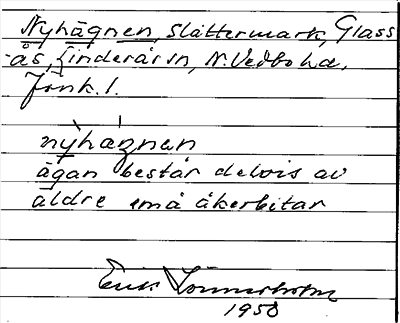 Nyhägnen, Slåttermark, Glass-
ås, Linderås sn, N. Vedbo hd,
Jönk. l.
nyhägnen
ägan består delvis av
äldre små åkerbitar
Erik Lönnerholm
1950